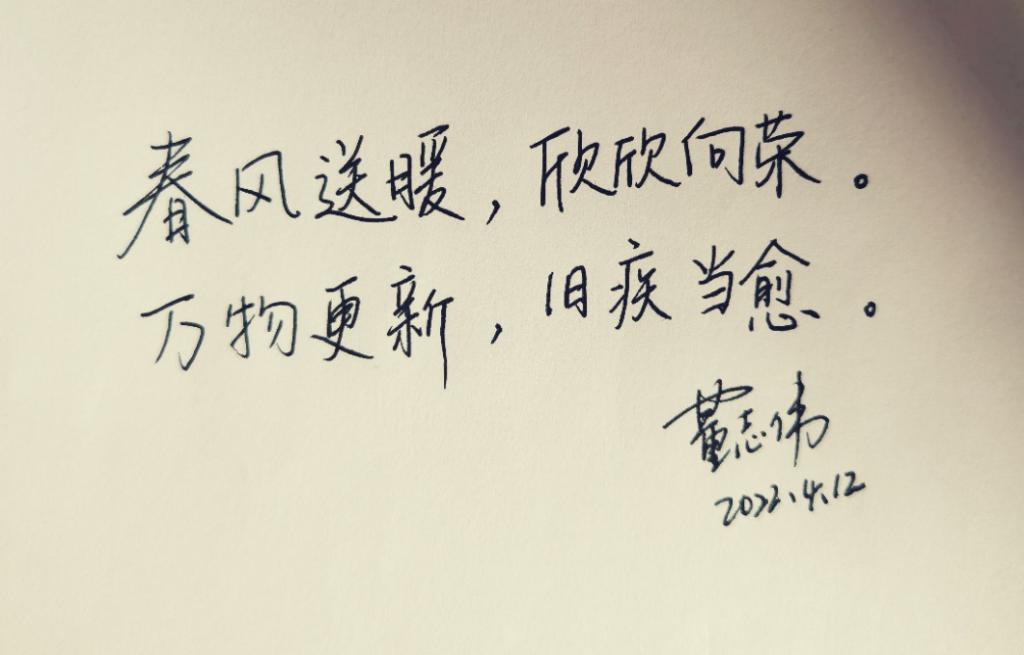 春风送暖，欣欣向荣。
万物更新，旧疾当愈。
董志伟
2022.4.12